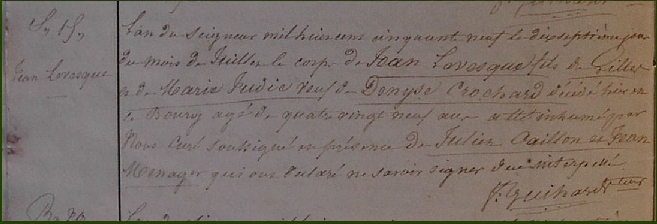 S. 15.
Jean Lavesque
L'an du Seigneur mil huit cens cinquant neuf le dixseptième jour
du mois de Juillet le corps de Jean Lavesque fils de Gilles
et de Marie Judic veuf de Denyse Crochard décédé hier en
ce Bourg agé de quatre vingt neuf ans a été inhumé par
Nous Curé soussigné en présence de Julien Caillon et Jean
Menager qui ont déclaré ne savoir signer de ce interpellé
J. Guihard Curé